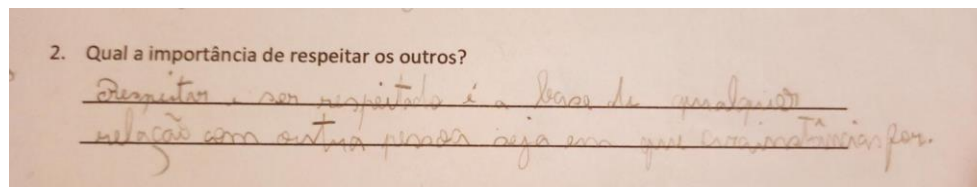 2. Qual a importância de respeitar os outros?
Respeitar e ser respeitado é a base de qualquer
relação com outra pessoa seja em que circinstâncias for.